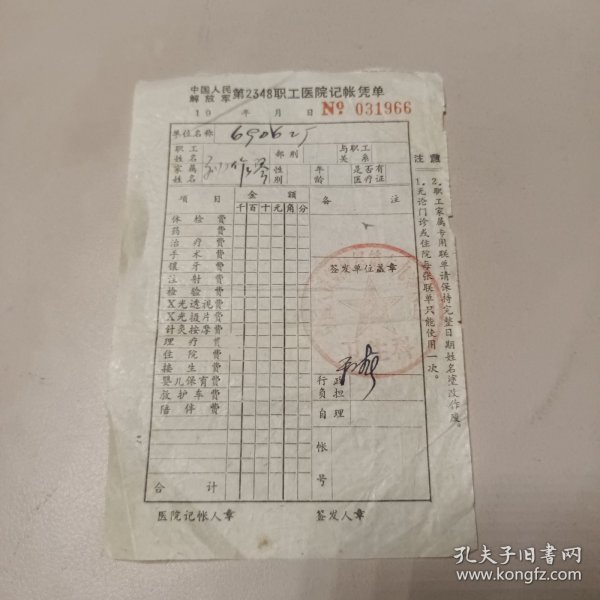 中国人民
解放军 第2348职工医院记帐凭单
19 年 月 日 № 031966
单位名称 690625
职工姓名 部别 与职工关系
家属姓名 性别 年龄 是否有医疗证
项目 金额 备注
千百十元角分
体检费
药费
治疗费
手术费
镶牙费
注射费
检验费
X光透视费
X光摄片费
针灸按摩费
理疗费
住院费
接生费
婴儿保育费
救护车费
陪伴费
合计
签发单位盖章
行政负担
自理
帐号
医院记帐人章 签发人章
注意
1.无论门诊或住院每张联单只能使用一次。
2.职工家属专用联单请保持完整日期姓名涂改作废。
孔夫子旧书网
www.kongfz.com